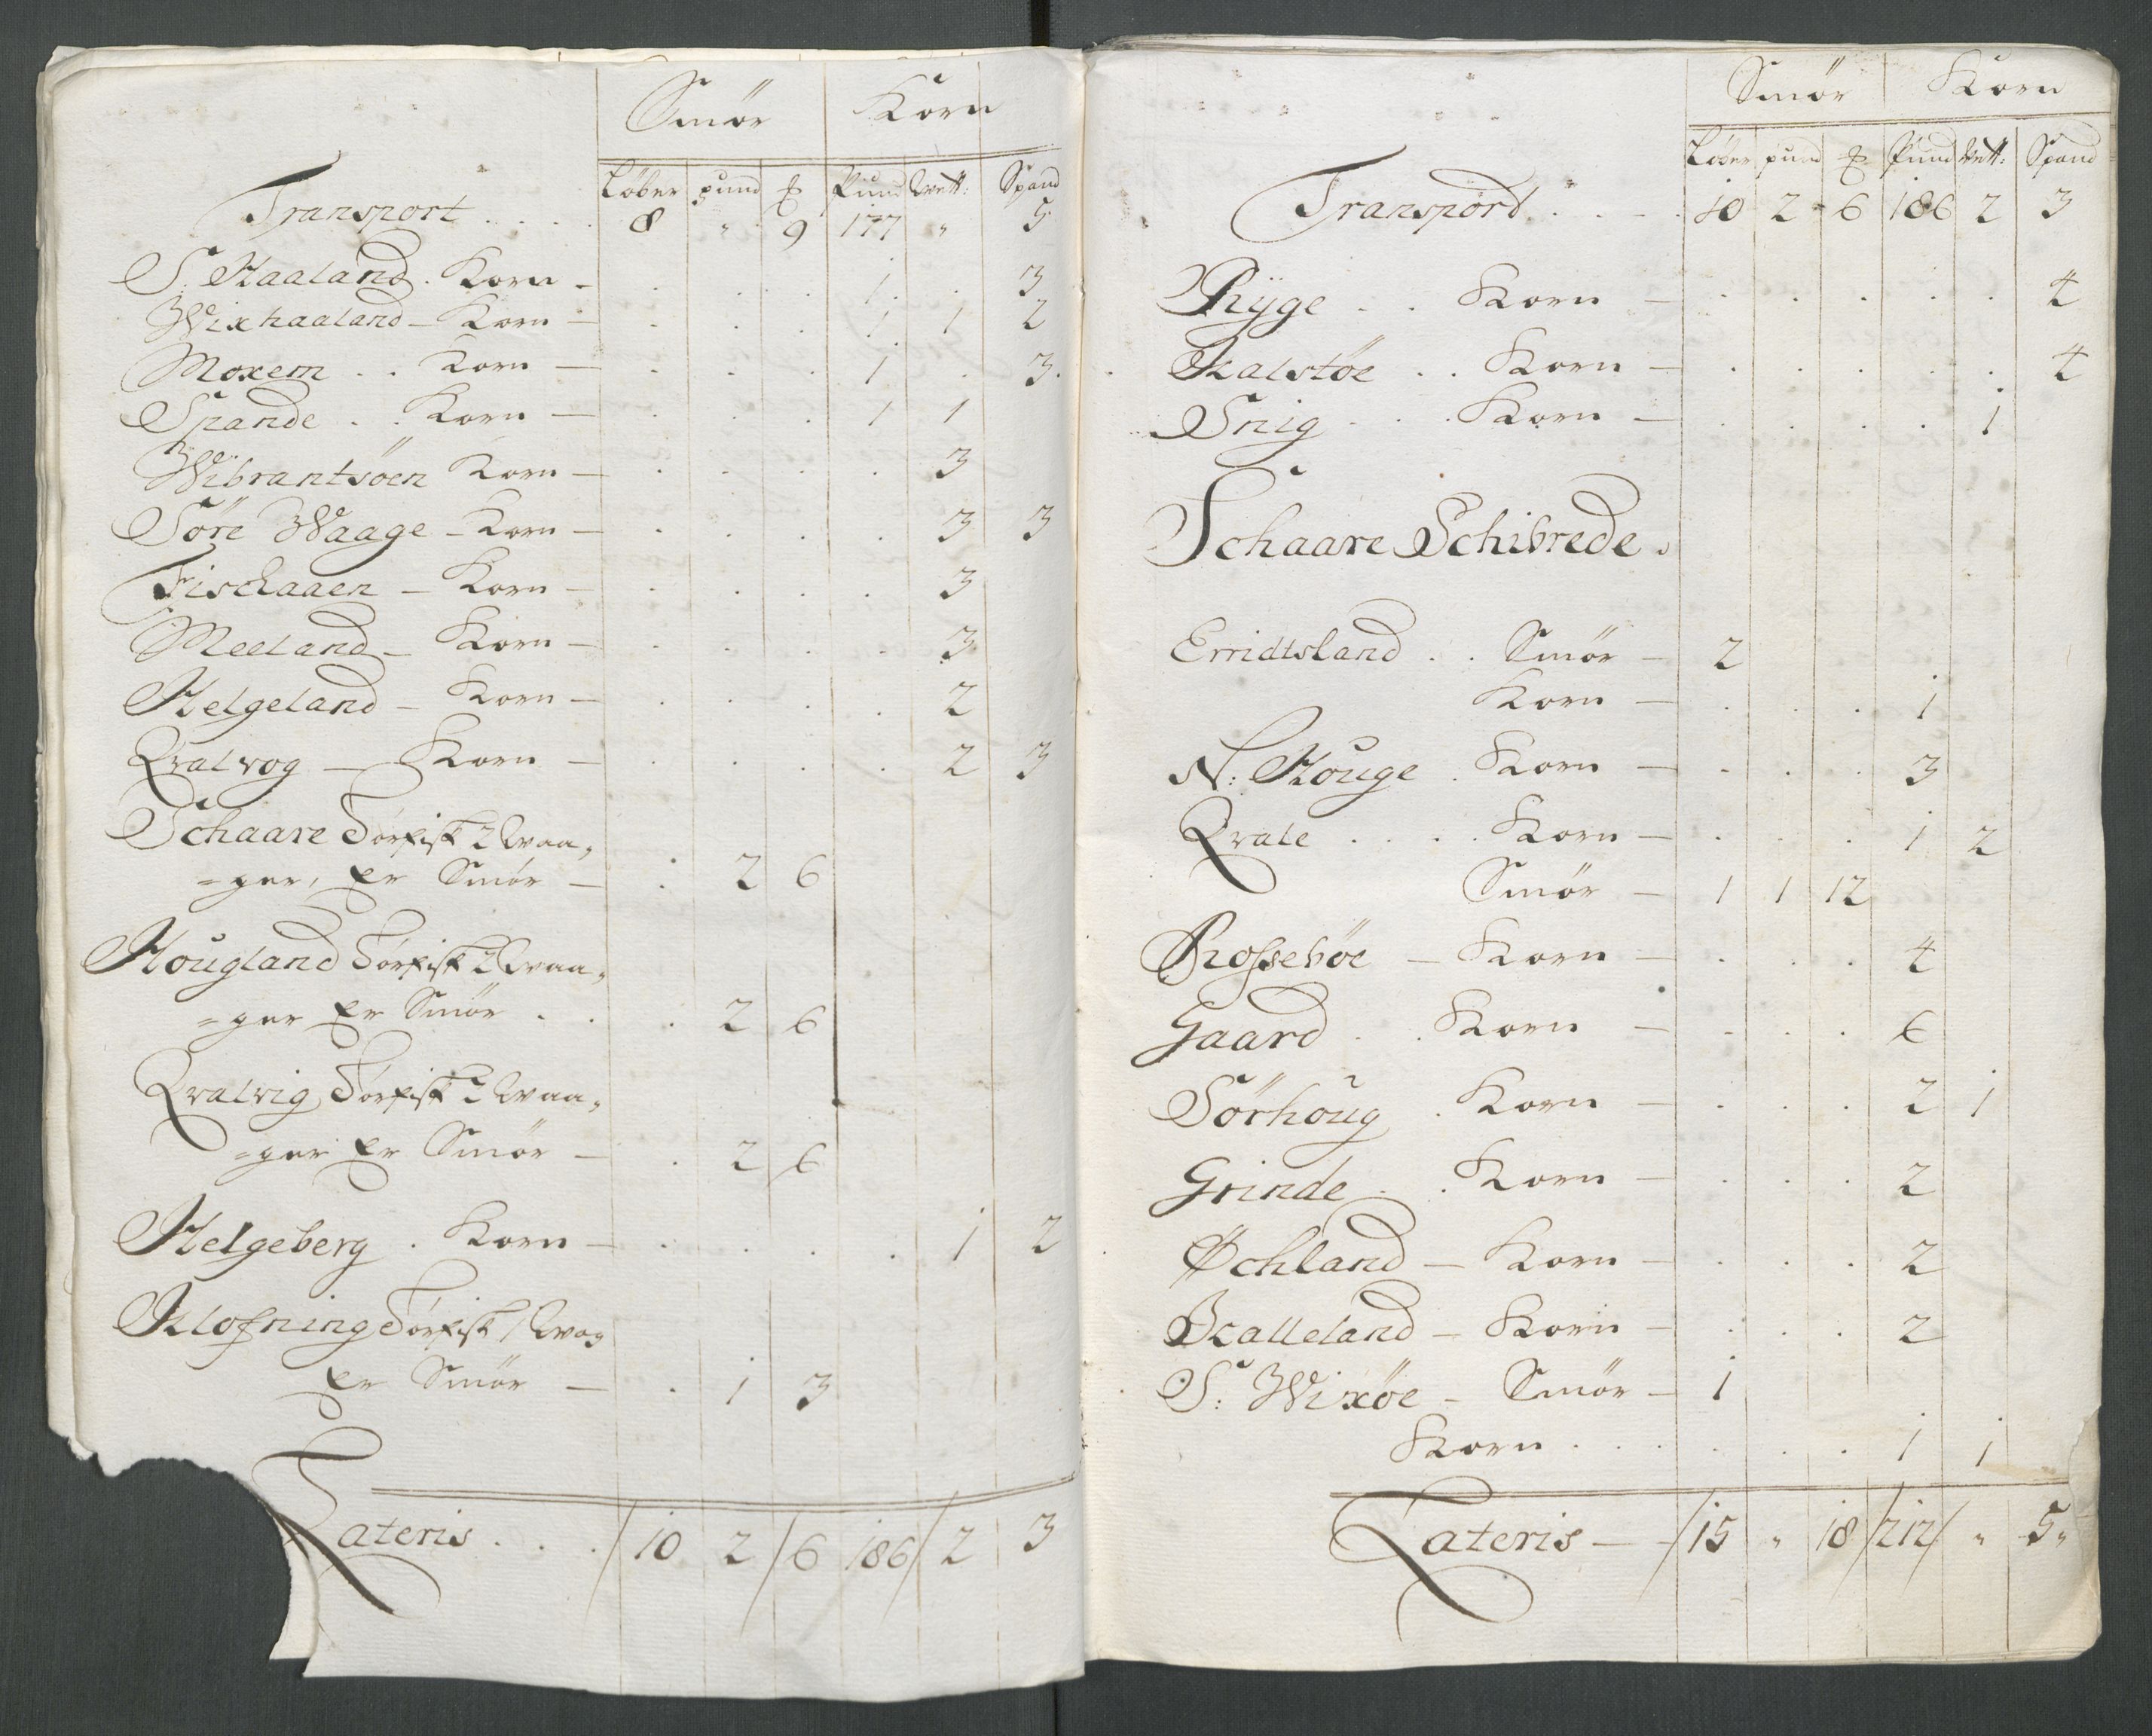 Smör Korn
Löber pund ℔ Pund Vett: Spand
Transport . . . . 8 " 9 177 " 5
S. Haaland. Korn - 1 . 3
Wixhaaland - Korn - 1 1 2
Moxem . . Korn - 1 . 3.
Spande . . Korn - 1 1
Wibrantsöen Korn - 3
Söre Waage - Korn - 3 3
Fischaaen - Korn - 3
Meeland - Korn - 3
Helgeland - Korn - 2
Qvalvog - Korn - 2 3
Schaare Törfisk 2 Waa,,
=ger, Er Smör - 2 6
Hougland Törfisk 2 Waa,,
=ger Er Smör . . 2 6
Qvalvig Törfisk 2 Waa,,
=ger Er Smör - 2 6
Helgeberg . Korn - 1 2
Klofning Törfisk 1 Wog
Er Smör - 1 3
Lateris . . . 10 2 6 186 2 3
Smör Korn
Löber pund ℔ Pund Vett: Spand
Transport . . . . 10 2 6 186 2 3
Ryge . . Korn - 4
Kalstöe . . Korn - 4
Snig . . . Korn - 1
Schaare Schibrede.
Erridtsland . . Smör - 2
Korn - 1
N: Houge . Korn - 3
Qvale . . . . Korn - 1 2
Smör - 1 1 12
Rosseböe - Korn - 4
Gaard . . Korn - 6
Sörhoug . Korn - 2 1
Grinde . . Korn - 2
Øchland - Korn - 2
Bcalleland - Korn - 2
S: Wixöe - Smör - 1
Korn . . . 1 1
Lateris - 15 " 18 212 " 5"